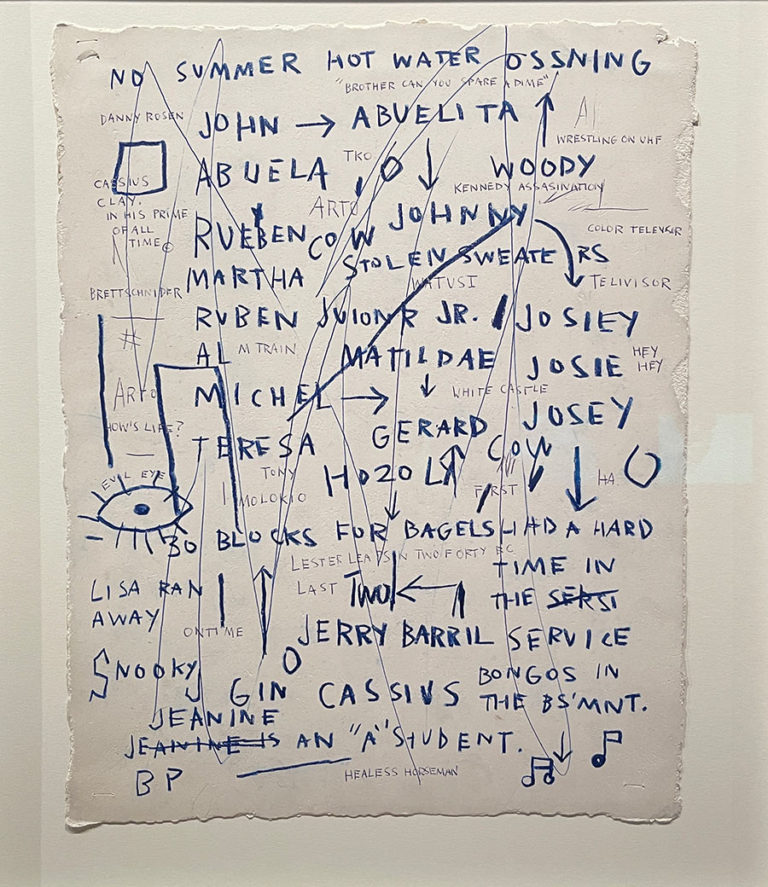 NO SUMMER HOT WATER OSSNING
"BROTHER CAN YOU SPARE A DIME"
DANNY ROSEN
JOHN → ABUELITA
AJ
WRESTLING ON UHF
ABUELA
TKO
WOODY
CASSIUS
CLAY,
IN HIS PRIME
OF ALL
TIME
KENNEDY ASSASINATION
ARTO
JOHNNY
RUEBEN
COW
COLOR
STOLEN SWEATERS
MARTHA
WATUSI
TELIVISOR
BRETTSCHNIDER
RUBEN JUIONR JR.
JOSIEY
#
AL
M TRAIN
MATILDAE
JOSIE
HEY
HEY
ARTO
MICHEL →
WHITE CASTLE
JOSEY
HOW'S LIFE?
GERARD
TERESA
COW
TONY
HOZO LA
HA
EVIL EYE
MOLOKIO
FIRST
30 BLOCKS FOR BAGELS
HAD A HARD
TIME IN
THE SERSI
SERVICE
LESTER LEAPS IN TWO FORTY BC
LISA RAN
AWAY
LAST
TWO
ONTIME
JERRY BARRIL
SNOOKY
J GIN CASSIUS
BONGOS IN
THE BS'MNT.
JEANINE
JEANINE IS AN "A" STUDENT.
BP
HEALESS HORSEMAN